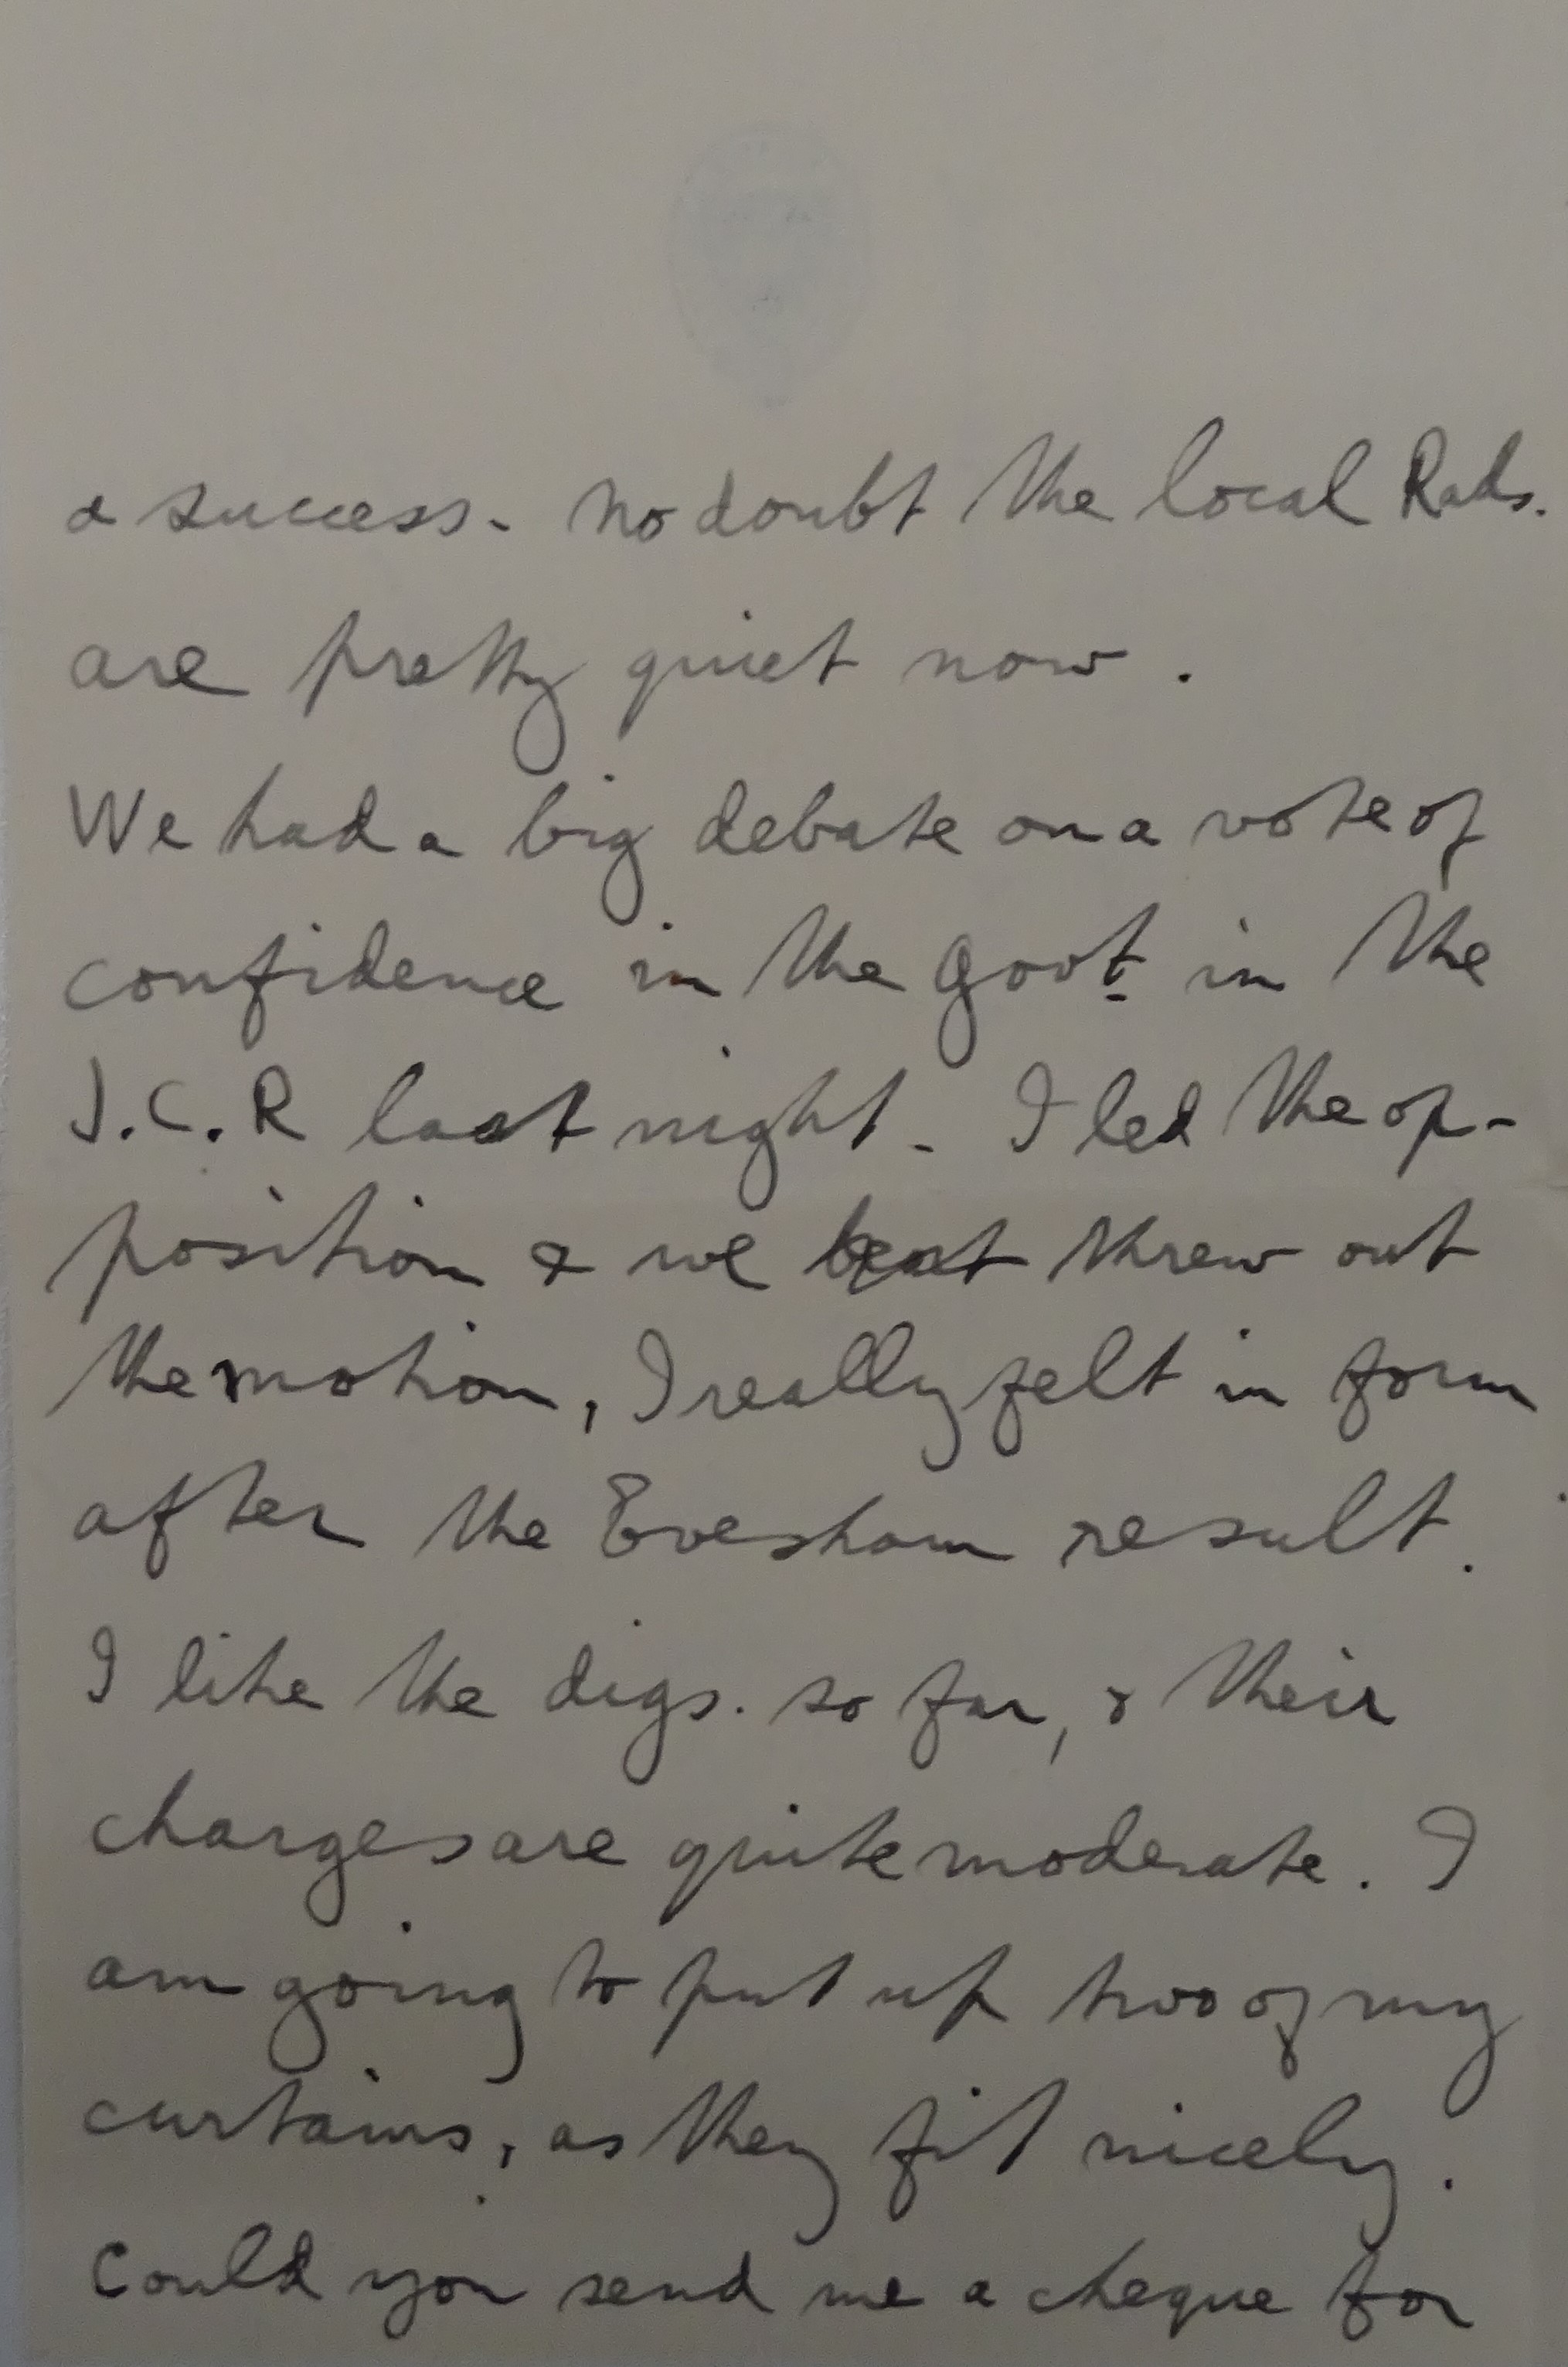 & success. No doubt the local Rads.
are pretty quiet now.
We had a big debate on a vote of
confidence in the Govt. in the
J.C.R last night. I led the op-
position & we beat threw out
the motion, I really felt in form
after the Evesham result.
I like the digs. so far, & their
charges are quite moderate. I
am going to put up two of my
curtains, as they fit nicely.
Could you send me a cheque for